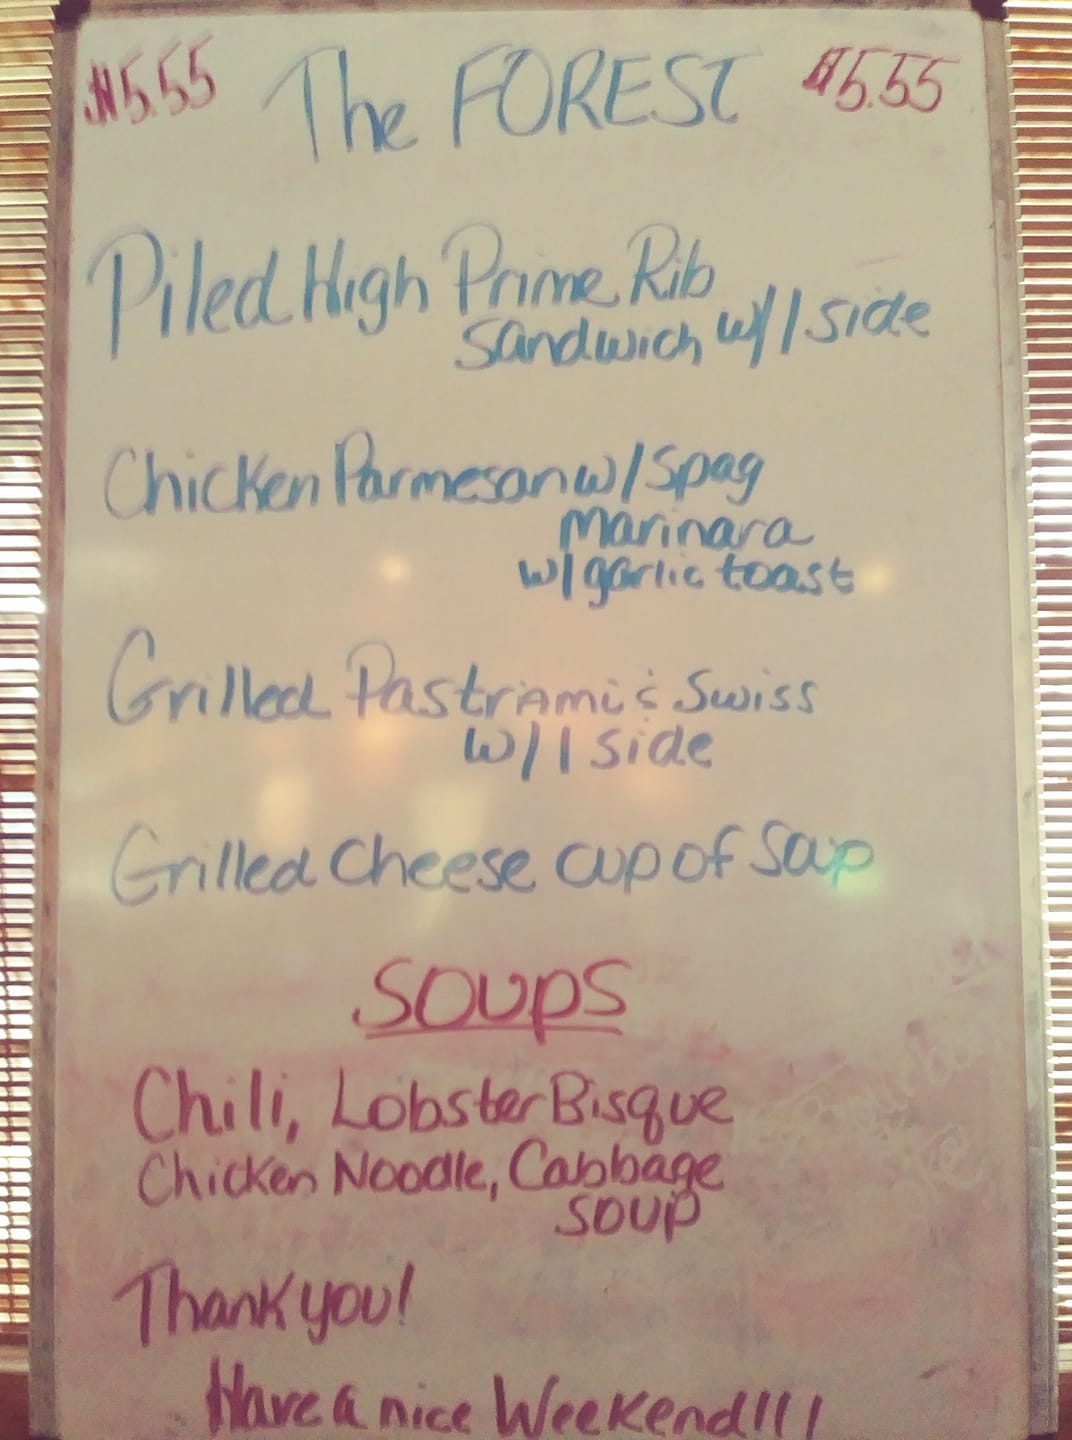 $5.55 The FOREST $5.55
Piled High Prime Rib
Sandwich w/1 side
Chicken Parmesan w/Spag
Marinara
w/garlic toast
Grilled Pastrami & Swiss
w/1 side
Grilled Cheese cup of Soup
SOUPS
Chili, Lobster Bisque
Chicken Noodle, Cabbage
SOUP
Thank you!
Have a nice Weekend!!!!